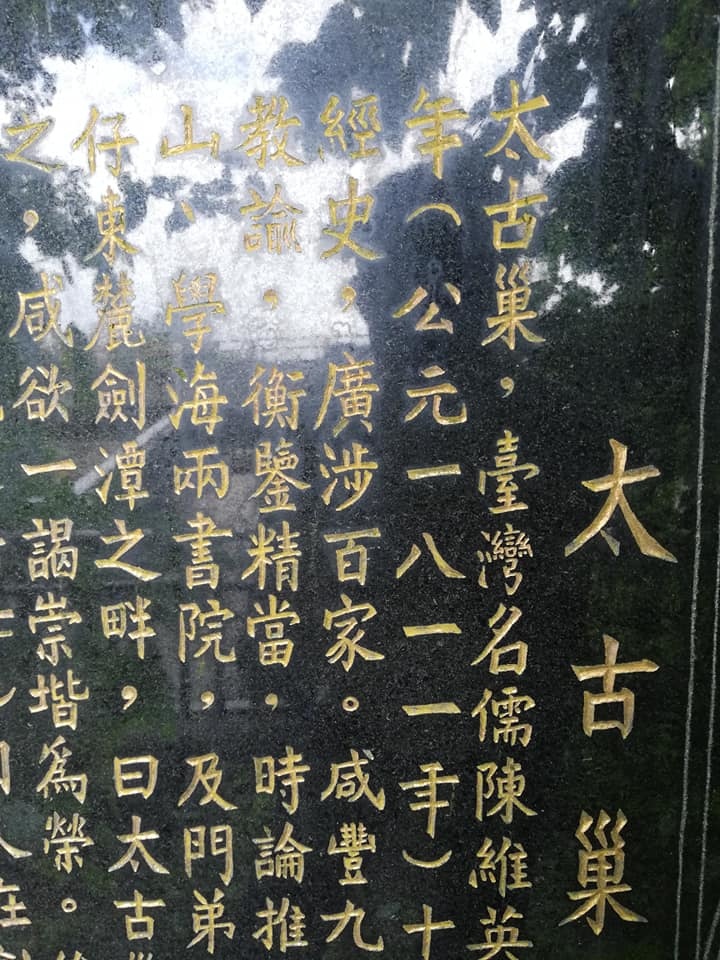 太古巢
太古巢，臺灣名儒陳維英
年（公元一八一一年）十
經史，廣涉百家。咸豐九
教諭，衡鑒精當，時論推
山、學海兩書院，及門弟
仔東麓劍潭之畔，曰太古
之，咸欲一謁崇堦爲榮。